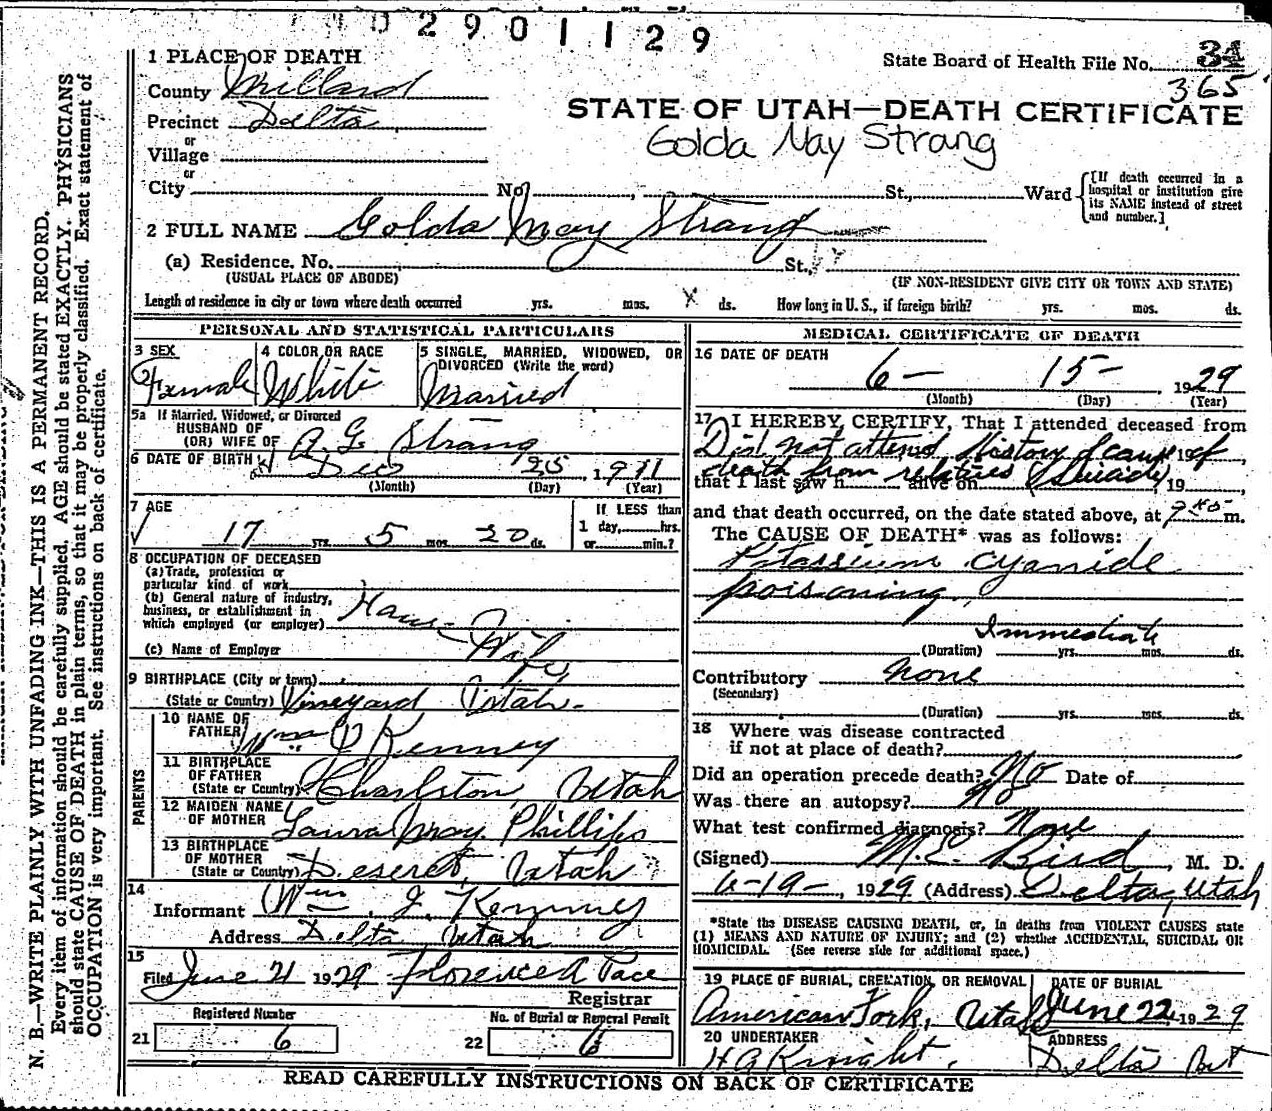 02901129
1 PLACE OF DEATH
State Board of Health File No. 31
365
County Millard
STATE OF UTAH—DEATH CERTIFICATE
Precinct Delta
Golda May Strang
or
Village
or
City No. St., Ward
[If death occurred in a hospital or institution give its NAME instead of street and number.]
2 FULL NAME Golda May Strang
(a) Residence. No. St.,
(USUAL PLACE OF ABODE) (IF NON-RESIDENT GIVE CITY OR TOWN AND STATE)
Length of residence in city or town where death occurred yrs. mos. X ds. How long in U. S., if foreign birth? yrs. mos. ds.
PERSONAL AND STATISTICAL PARTICULARS
3 SEX 4 COLOR OR RACE 5 SINGLE, MARRIED, WIDOWED, OR
DIVORCED (Write the word)
Female White Married
5a If Married, Widowed, or Divorced
HUSBAND OF
(OR) WIFE OF A. G. Strang
6 DATE OF BIRTH Dec 25, 1911
(Month) (Day) (Year)
7 AGE If LESS than
17 yrs. 5 mos. 20 ds. 1 day, hrs.
or min.?
8 OCCUPATION OF DECEASED
(a) Trade, profession or
particular kind of work
(b) General nature of industry,
business, or establishment in
which employed (or employer) House Wife
(c) Name of Employer
9 BIRTHPLACE (City or town)
(State or Country) Vineyard Utah.
PARENTS
10 NAME OF
FATHER Wm J Kenney
11 BIRTHPLACE
OF FATHER
(State or Country) Charlston, Utah
12 MAIDEN NAME
OF MOTHER Laura May Phillips
13 BIRTHPLACE
OF MOTHER
(State or Country) Deseret, Utah
14
Informant Wm. J. Kenney
Address Delta, Utah
15
Filed June 21 1929 Florence A Pace
Registrar
Registered Number No. of Burial or Removal Permit
21 6 22 6
MEDICAL CERTIFICATE OF DEATH
16 DATE OF DEATH
6- 15- 1929
(Month) (Day) (Year)
17 I HEREBY CERTIFY, That I attended deceased from
Did not attend, History & cause 19 of
death from relatives (Suicide)
that I last saw h alive on 19
and that death occurred, on the date stated above, at m.
The CAUSE OF DEATH* was as follows:
Potassium cyanide
poisoning.
Immediate
(Duration) yrs. mos. ds.
Contributory None
(Secondary)
(Duration) yrs. mos. ds.
18 Where was disease contracted
if not at place of death?
Did an operation precede death? No Date of
Was there an autopsy? No
What test confirmed diagnosis? None
(Signed) M. E. Bird, M. D.
6-19-, 1929 (Address) Delta, Utah
*State the DISEASE CAUSING DEATH, or, in deaths from VIOLENT CAUSES state
(1) MEANS AND NATURE OF INJURY; and (2) whether ACCIDENTAL, SUICIDAL OR
HOMICIDAL. (See reverse side for additional space.)
19 PLACE OF BURIAL, CREMATION, OR REMOVAL DATE OF BURIAL
American Fork, Utah June 22, 1929
20 UNDERTAKER ADDRESS
H A Knight. Delta Ut
READ CAREFULLY INSTRUCTIONS ON BACK OF CERTIFICATE
N. B.—WRITE PLAINLY WITH UNFADING INK—THIS IS A PERMANENT RECORD.
Every item of information should be carefully supplied. AGE should be stated EXACTLY. PHYSICIANS
should state CAUSE OF DEATH in plain terms, so that it may be properly classified. Exact statement of
OCCUPATION is very important. See instructions on back of certificate.